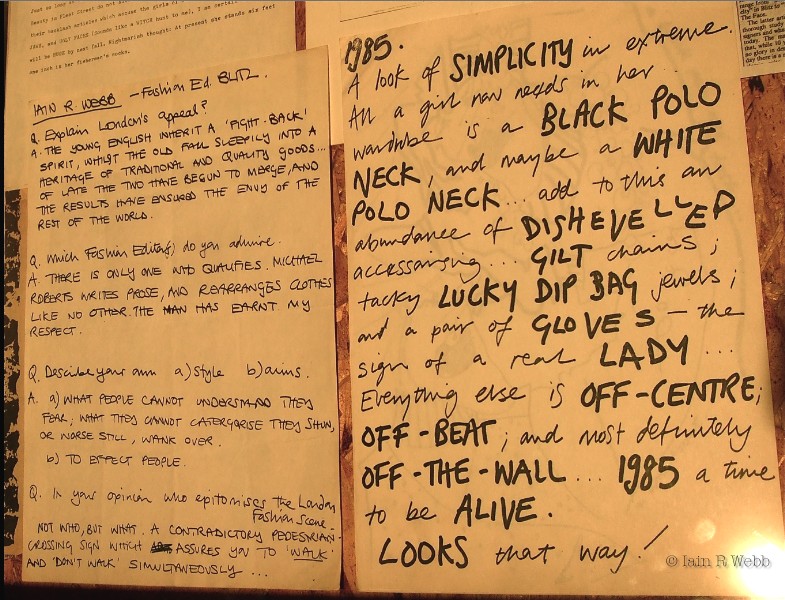 Beauty in Fleet Street do not
their useless articles which across the girls of
JEAN, and UGLY FACED (Looks like a WITCH hunt to me). I am certain
will be HUGE by next Fall. Nightmarish thought! At present she stands six feet
one inch in her fisherman's socks.
IAIN R. WEBB - Fashion Ed. BLITZ.
Q. Explain London's appeal?
A. THE YOUNG ENGLISH INHERIT A 'FIGHT-BACK'
SPIRIT, WHILST THE OLD FALL SLEEPILY INTO A
HERITAGE OF TRADITIONAL AND QUALITY GOODS...
OF LATE THE TWO HAVE BEGUN TO MERGE, AND
THE RESULTS HAVE ENSURED THE ENVY OF THE
REST OF THE WORLD.
Q. Which Fashion Editor(s) do you admire.
A. THERE IS ONLY ONE WHO QUALIFIES. MICHAEL
ROBERTS WRITES PROSE, AND REARRANGES CLOTHES
LIKE NO OTHER. THE MAN HAS EARNT MY
RESPECT.
Q. Describe your own a) style b) aims.
A. a) WHAT PEOPLE CANNOT UNDERSTAND THEY
FEAR; WHAT THEY CANNOT CATERGORISE THEY SHUN,
OR WORSE STILL, WANK OVER.
b) TO EFFECT PEOPLE.
Q. In your opinion who epitomises the London
Fashion Scene.
NOT WHO, BUT WHAT. A CONTRADICTORY PEDESTRIAN-
CROSSING SIGN WHICH ASSURES YOU TO 'WALK'
AND 'DON'T WALK' SIMULTANEOUSLY ...
1985.
A look of SIMPLICITY in extreme.
All a girl now needs in her
wardrobe is a BLACK POLO
NECK, and maybe a WHITE
POLO NECK... add to this an
abundance of DISHEVELLED
accessorising.... GILT chains;
tacky LUCKY DIP BAG jewels;
and a pair of GLOVES - the
sign of a real LADY ...
Everything else is OFF-CENTRE;
OFF-BEAT; and most definitely
OFF-THE-WALL... 1985 a time
to be ALIVE.
LOOKS that way!
© Iain R Webb